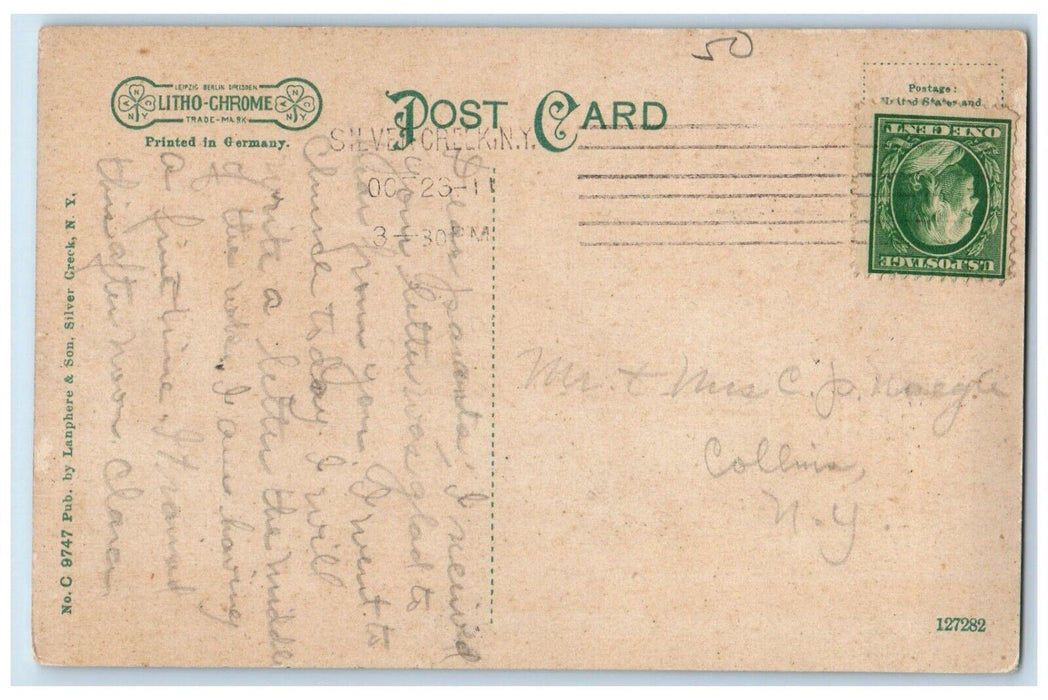 50
LEIPZIG BERLIN DRESDEN
LITHO-CHROME
TRADE-MARK
Printed in Germany.
POST CARD
Postage:
United States and
ONE CENT
U.S. POSTAGE
SILVER CREEK, N.Y.
OC 23-11
3-30 PM
Dear parents, I received
your letter was glad to
hear from you. I went to
Church today. I will
write a letter the middle
of the week. I am having
a fine time. It rained
this afternoon. Clara
Mr. & Mrs C. J. Naegle
Collins,
N.Y.
No. C 9747 Pub. by Lanphere & Son, Silver Creek, N. Y.
127282